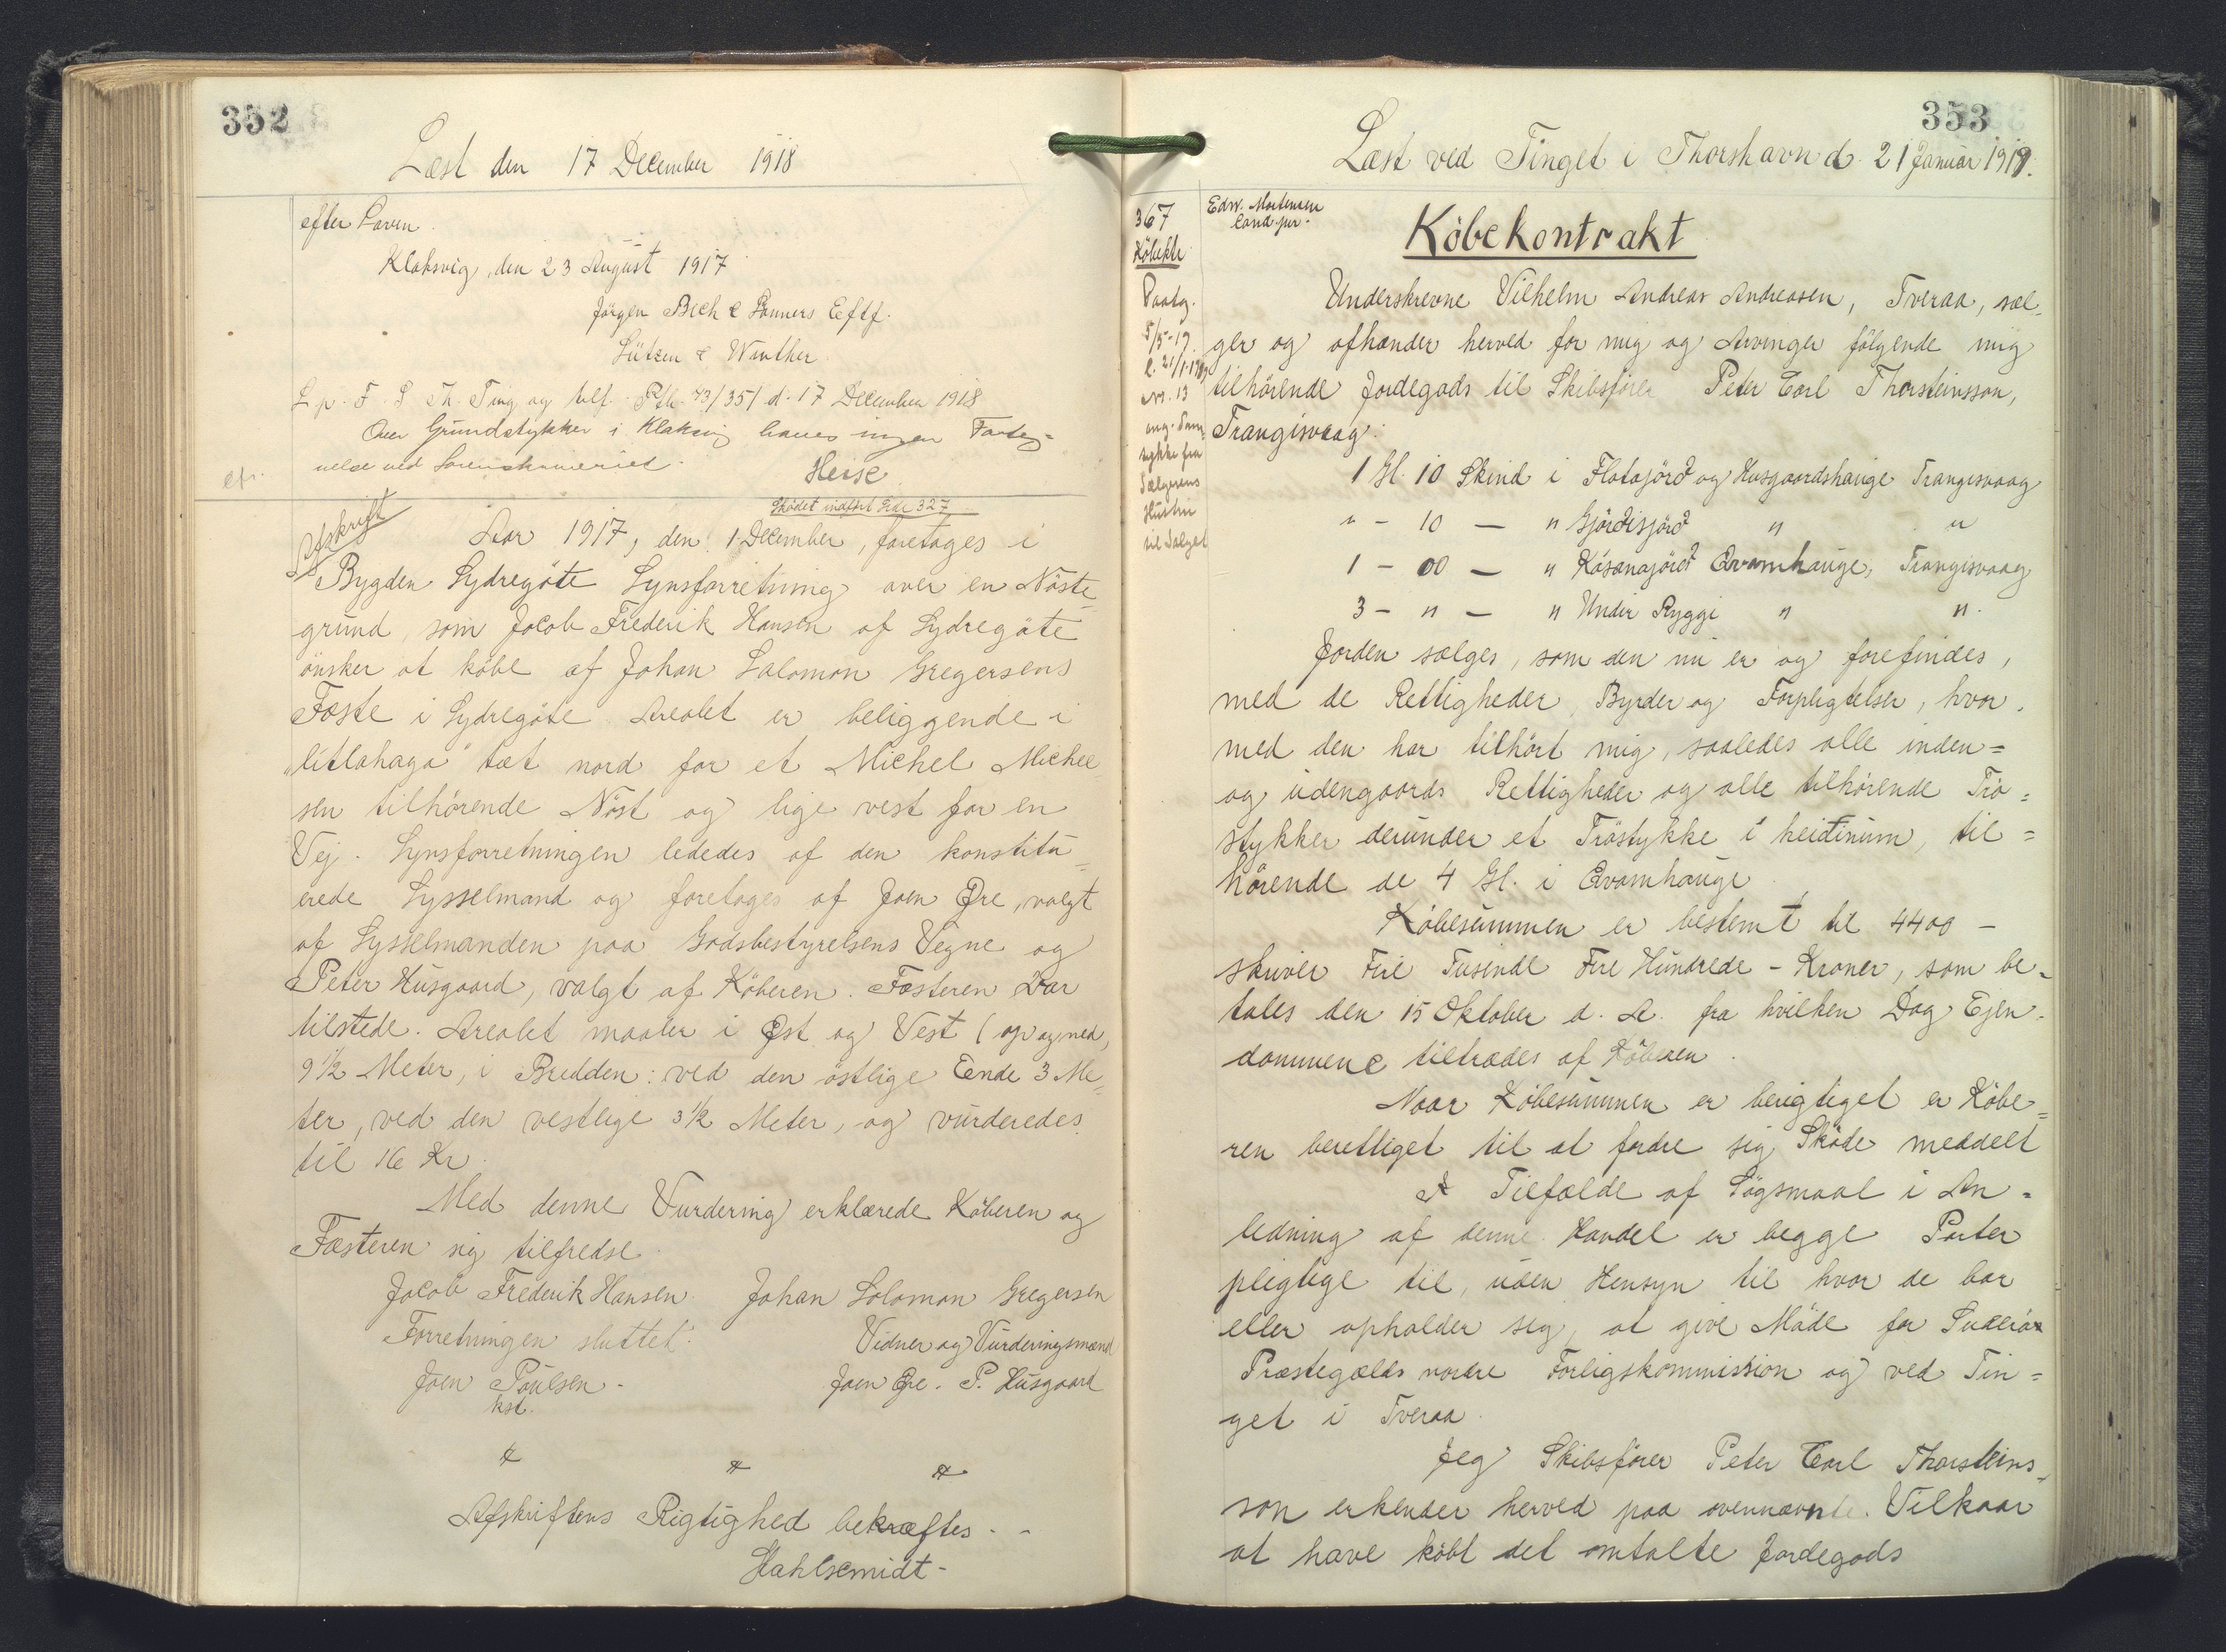 352
Læst den 17 December 1918
efter Loven.
Klaksvig, den 23 August 1917
Jörgen Bech & Sönners Eftf.
Lützen & Winther
L. p. F. S. Th. Ting og tilf. Pfb. 43/351 d. 17 December 1918
Over Grundstykker i Klaksvig haves ingen Forteg=
nelse ved Sorenskriveriet.
Heise
Sködet indført Side 327
Afskrift
Aar 1917, den 1 December, foretoges i
Bygden Sydregöte Synsforretning over en Nöste
grund, som Jacob Frederik Hansen af Sydregöte
önsker at köbe af Johan Salomon Gregersens
Fæste i Sydregöte. Arealet er beliggende i
"litlahaga" tæt nord for et Michel Michel
sen tilhörende Nöst og lige vest for en
Vej. Synsforretningen lededes af den konstitu=
erede Sysselmand og foretages af Joen Øre, valgt
af Sysselmanden paa Godsbestyrelsens Vegne og
Peter Husgaard, valgt af Köberen. Fæsteren var
tilstede. Arealet maaler i Øst og Vest (op og ned)
9 1/2 Meter, i Bredden: ved den östlige Ende 3 Me=
ter, ved den vestlige 3 1/2 Meter, og vurderedes
til 16 Kr.
Med denne Vurdering erklærede Köberen og
Fæsteren sig tilfredse
Jacob Frederik Hansen. Johan Solomon Gregersen
Forretningen sluttet. Vidner og Vurderingsmænd
Joen Poulsen. Joen Øre. P. Husgaard
kst.
Afskriftens Rigtighed bekræftes
Stahlscmidt
353
Læst ved Tinget i Thorshavn d. 21 Januar 1919.
367
Köbektr
Paateg.
5/5-19
l. 21/1-1919
nr. 13
ang. Sam
tykke fra
Sælgerens
Hustru
til Salget
Edw. Mortensen
Cand. jur.
Köbekontrakt
Underskrevne Vilhelm Andreas Andreasen, Tveraa, sæl=
ger og afhænder herved for mig og Arvinger fölgende mig
tilhörende Jordegods til Skibsförer Peter Carl Thorsteinsson,
Trangisvaag:
1 Gl. 10 Skind i Flatajörð og Husgaardshauge Trangisvaag
" - 10 - " Gjördisjörð " "
1 - 00 - " Kósanajörð Qvamhauge, Trangisvaag
3 - " - " Undir Ryggi " "
Jorden sælges, som den nu er og forefindes,
med de Rettigheder, Byrder og Forpligtelser, hvor=
med den har tilhört mig, saaledes alle inden=
og udengaards Rettigheder og alle tilhörende Trö=
stykker derunder et Tröstykke i heidinum, til=
hörende de 4 Gl. i Qvamhauge
Köbesummen er bestemt til 4400 -
skriver Fire Tusinde Fire Hundrede - Kroner, som be=
tales den 15 Oktober d. A. fra hvilken Dag Ejen=
dommene tiltrædes af Köberen.
Naar Köbesummen er berigtiget er Köbe=
ren berettiget til at fordre sig Sköde meddelt
I Tilfælde af Sögsmaal i An=
ledning af denne Handel er begge Parter
pligtige til, uden Hensyn til hvor de bor
eller opholder sig, at give Möde for Suderö
Præstegælds nordre Forligskommission og ved Tin=
get i Tveraa.
Jeg Skibsförer Peter Carl Thorsteins=
son erkender herved paa ovennævnte Vilkaar
at have köbt det omtalte Jordegods